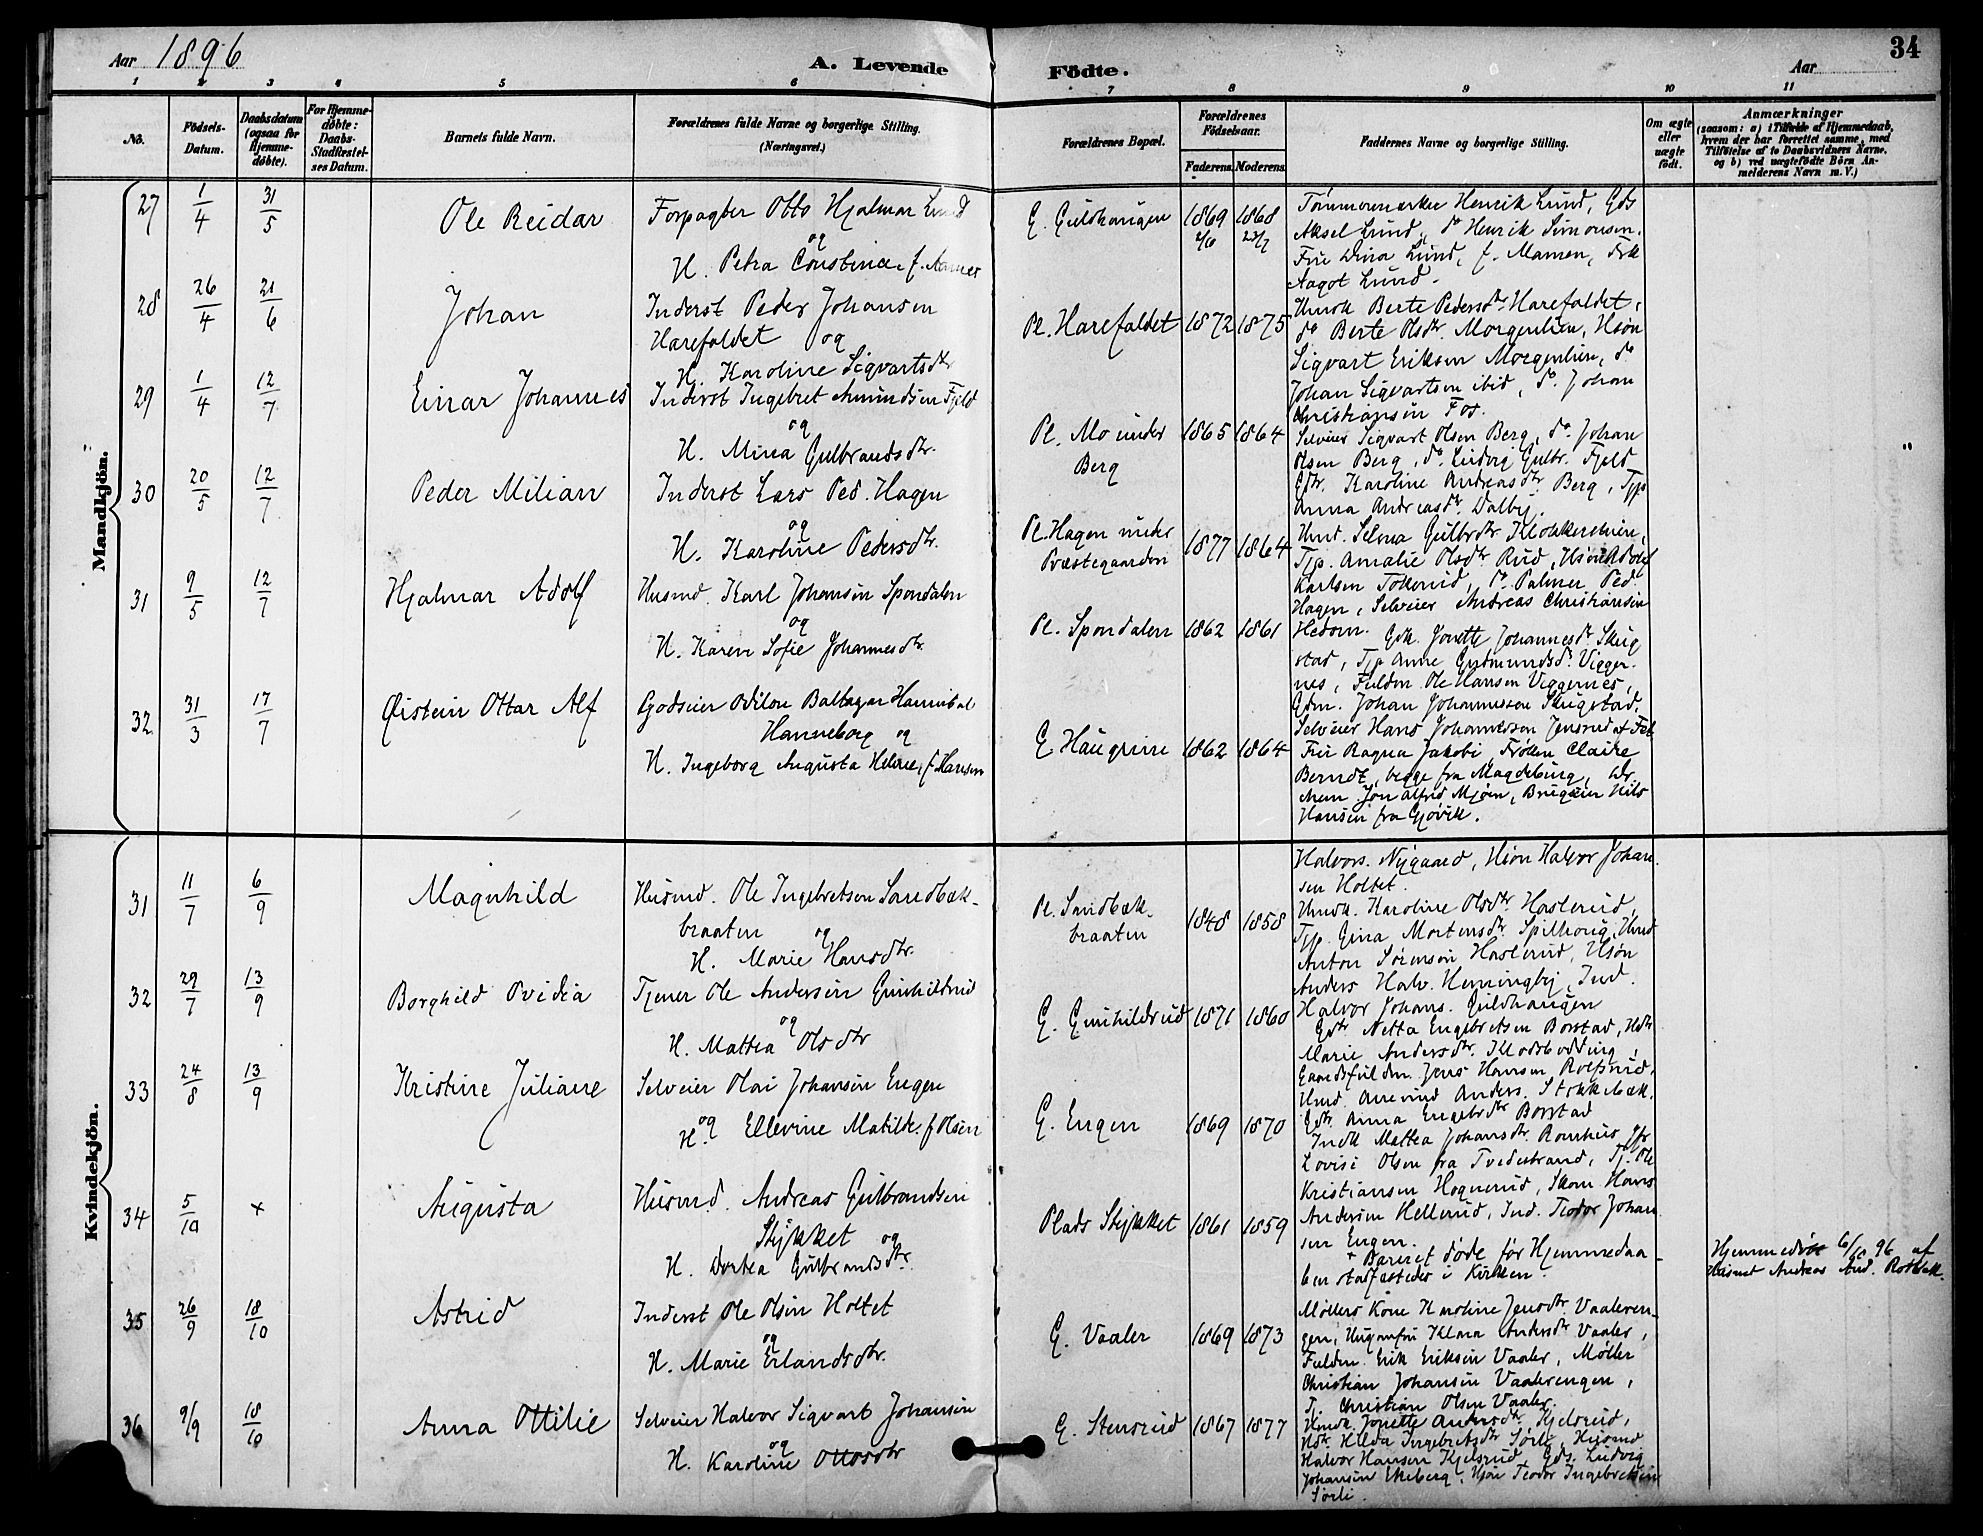 Aar 1896
A. Levende Födte.
Aar
34
1 2 3 4 5 6 7 8 9 10 11
No.
Födsels-Datum.
Daabsdatum (ogsaa for Hjemme-døbte).
For Hjemme-døbte: Daabs-Stadfæstel-ses Datum.
Barnets fulde Navn.
Forældrenes fulde Navne og borgerlige Stilling.
(Næringsvei.)
Forældrenes Bopæl.
Forældrenes Födselsaar.
Faderens. Moderens.
Faddernes Navne og borgerlige Stilling.
Om ægte eller uægte født.
Anmærkninger
(saasom: a) i Tilfælde af Hjemmedaab, hvem der har forrettet samme, med Tilføielse af to Daabsvidners Navne, og b) ved uægtefødte Börn An-melderens Navn m. V.)
Mandkjön.
27 1/4 31/5 Ole Reidar
Forpagter Otto Hjalmar Lund
og
H. Petra Constance, f. Aamer
G. Guldhaugen 1869 2/6 1868 22/7
Henrik Lund, Gds
Aksel Lund, do Henrik Simonsen,
Fru Dina Lund, f. Mamen, Frk
Aagot Lund.
28 26/4 21/6 Johan
Inderst Peder Johansen
Harefaldet og
H. Karoline Sigvartsdtr
Pl. Harefaldet 1872 1875
Hmdk Berte Pedersdtr Harefaldet,
do Berte Olsdtr. Morgenlien, Hsøn
Sigvart Eriksen Morgenlien, do
Johan Sigvartsen ibid, do. Johan
Christiansen Fos.
29 1/4 12/7 Einar Johannes
Inderst Ingebret Amundsen Fjeld
og
H. Mina Gulbrandsdtr.
Pl. Mo under
Berg
1865 1864
Selveier Sigvart Olsen Berg, do Johan
Olsen Berg, do. Ludvig Gulbr. Fjeld
Gdtr. Karoline Andreasdtr Berg, Tjp.
Anna Andreasdtr. Dalby.
30 20/5 12/7 Peder Milian
Inderst Lars Ped. Hagen
og
H. Karoline Pedersdtr.
Pl. Hagen under
Præstegaarden
1877 1864
Hmd. Selma Gulbrdtr Klokkerengen,
Tjp. Amalie Olsdtr Rud, Hsøn Adolf
Karlsen Tokerud, do. Palmer Ped.
Hagen, Selveier Andreas Christiansen
Hedom.
31 9/5 12/7 Hjalmar Adolf
Husmd. Karl Johansen Spondalen
og
H. Karen Sofie Johannesdtr.
Pl. Spondalen 1862 1861
Gdk. Jonette Johannesdtr Skug
stad, Tjp Anne Gudmundsdtr Vigger-
nes, Fuldm. Ole Hansen Viggernes,
Gdm. Johan Johannesson Skugstad.
Selveier Hans Johannesson Jensrud
32. 31/3 17/7 Øistein Ottar Alf
Godseier Odilon Baltazar Hannibal
Hanneborg og
H. Ingeborg Augusta Helene, f. Hansen
G. Haugrim 1862 1864
Fru Ragna Jakobi, Frøken Claire
Berndt, begge fra Magdeburg, Dr.
chem Jon Alfred Mjøen, Brugseier Nils
Hansen fra Gjøvik.
Kvindekjön.
31 11/7 6/9 Magnhild
Husmd. Ole Ingebretsen Sandbæk-
braaten og
H. Marie Hansdtr.
Pl. Sandbæk-
braaten
1848 1858
Halvors. Nygaard, Hsøn Halvor Johan-
sen Holtet.
Hmdk. Karoline Olsdtr Haslerud,
Tjp. Gina Mortensdtr. Spilhoug, Hmd
Anton Sørensen Haslerud, Hsøn
Anders Halv. Hemingby, Ind.
Halvor Johans. Guldhaugen
32 29/7 13/9 Borghild Ovidia
Tjener Ole Andersen Gunhildrud
og
H. Mattea Olsdtr
G. Gunhildrud 1871 1860
Gdtr Netta Engebretsen Borstad, Hdtr
Marie Andersdtr. Klodsbødding,
Gaardsfuldm. Jens Hansen Rolfsrud,
Hmd. Anders. Stokkebæk,
Gdtr. Anna Engebrdtr Borstad
33 24/8 13/9 Kristine Juliane
Selveier Olai Johansen Engen
og
H. Ellevine Matilde f. Olsen
G. Engen 1869 1870
Indk Mattea Johansdtr. Romhus, Jfr
Lovise Olsen fra Tvedestrand, Tj. Ole
Kristiansen Hognerud, Skom Hans
Andersen Hellerud, Ind. Teodor Johan
sen Engen.
34 5/10 × Augusta
Husmd. Andreas Gulbrandsen
Stykket og
H. Dortea Gulbrandsdtr.
Plads Stykket 1861 1859
+ Barnet døde før Hjemmedaa-
ben stadfæstedes i Kirken.
Hjemmedøbt 6/10 96 af
Husmd Andreas And. Rotbæk.
35 26/9 18/10 Astrid
Inderst Ole Olsen Holtet
og
H. Marie Erlandsdtr.
G. Vaaler 1869 1873
Møllers Kone Karoline Jensdtr. Vaaleren-
gen, Ungomfru Klara Andersdtr Vaaler,
Fuldm. Erik Eriksen Vaaler, Møller
Christian Johansen Vaalerengen,
Tj. Christian Olsen Vaaler.
36 9/9 18/10 Anna Ottilie
Selveier Halvor Sigvart Johansen
og
H. Karoline Ottosdtr
G. Stensrud 1867 1877
Hmdk. Jonette Andersdtr. Kjelsrud,
Hdtr. Hilda Ingebretsdtr Sørli, Husmd
Halvor Hansen Kjelsrud, Gds. Ludvig
Johansen Ekeberg, Hsøn Teodor Ingebretsen
Sørli.